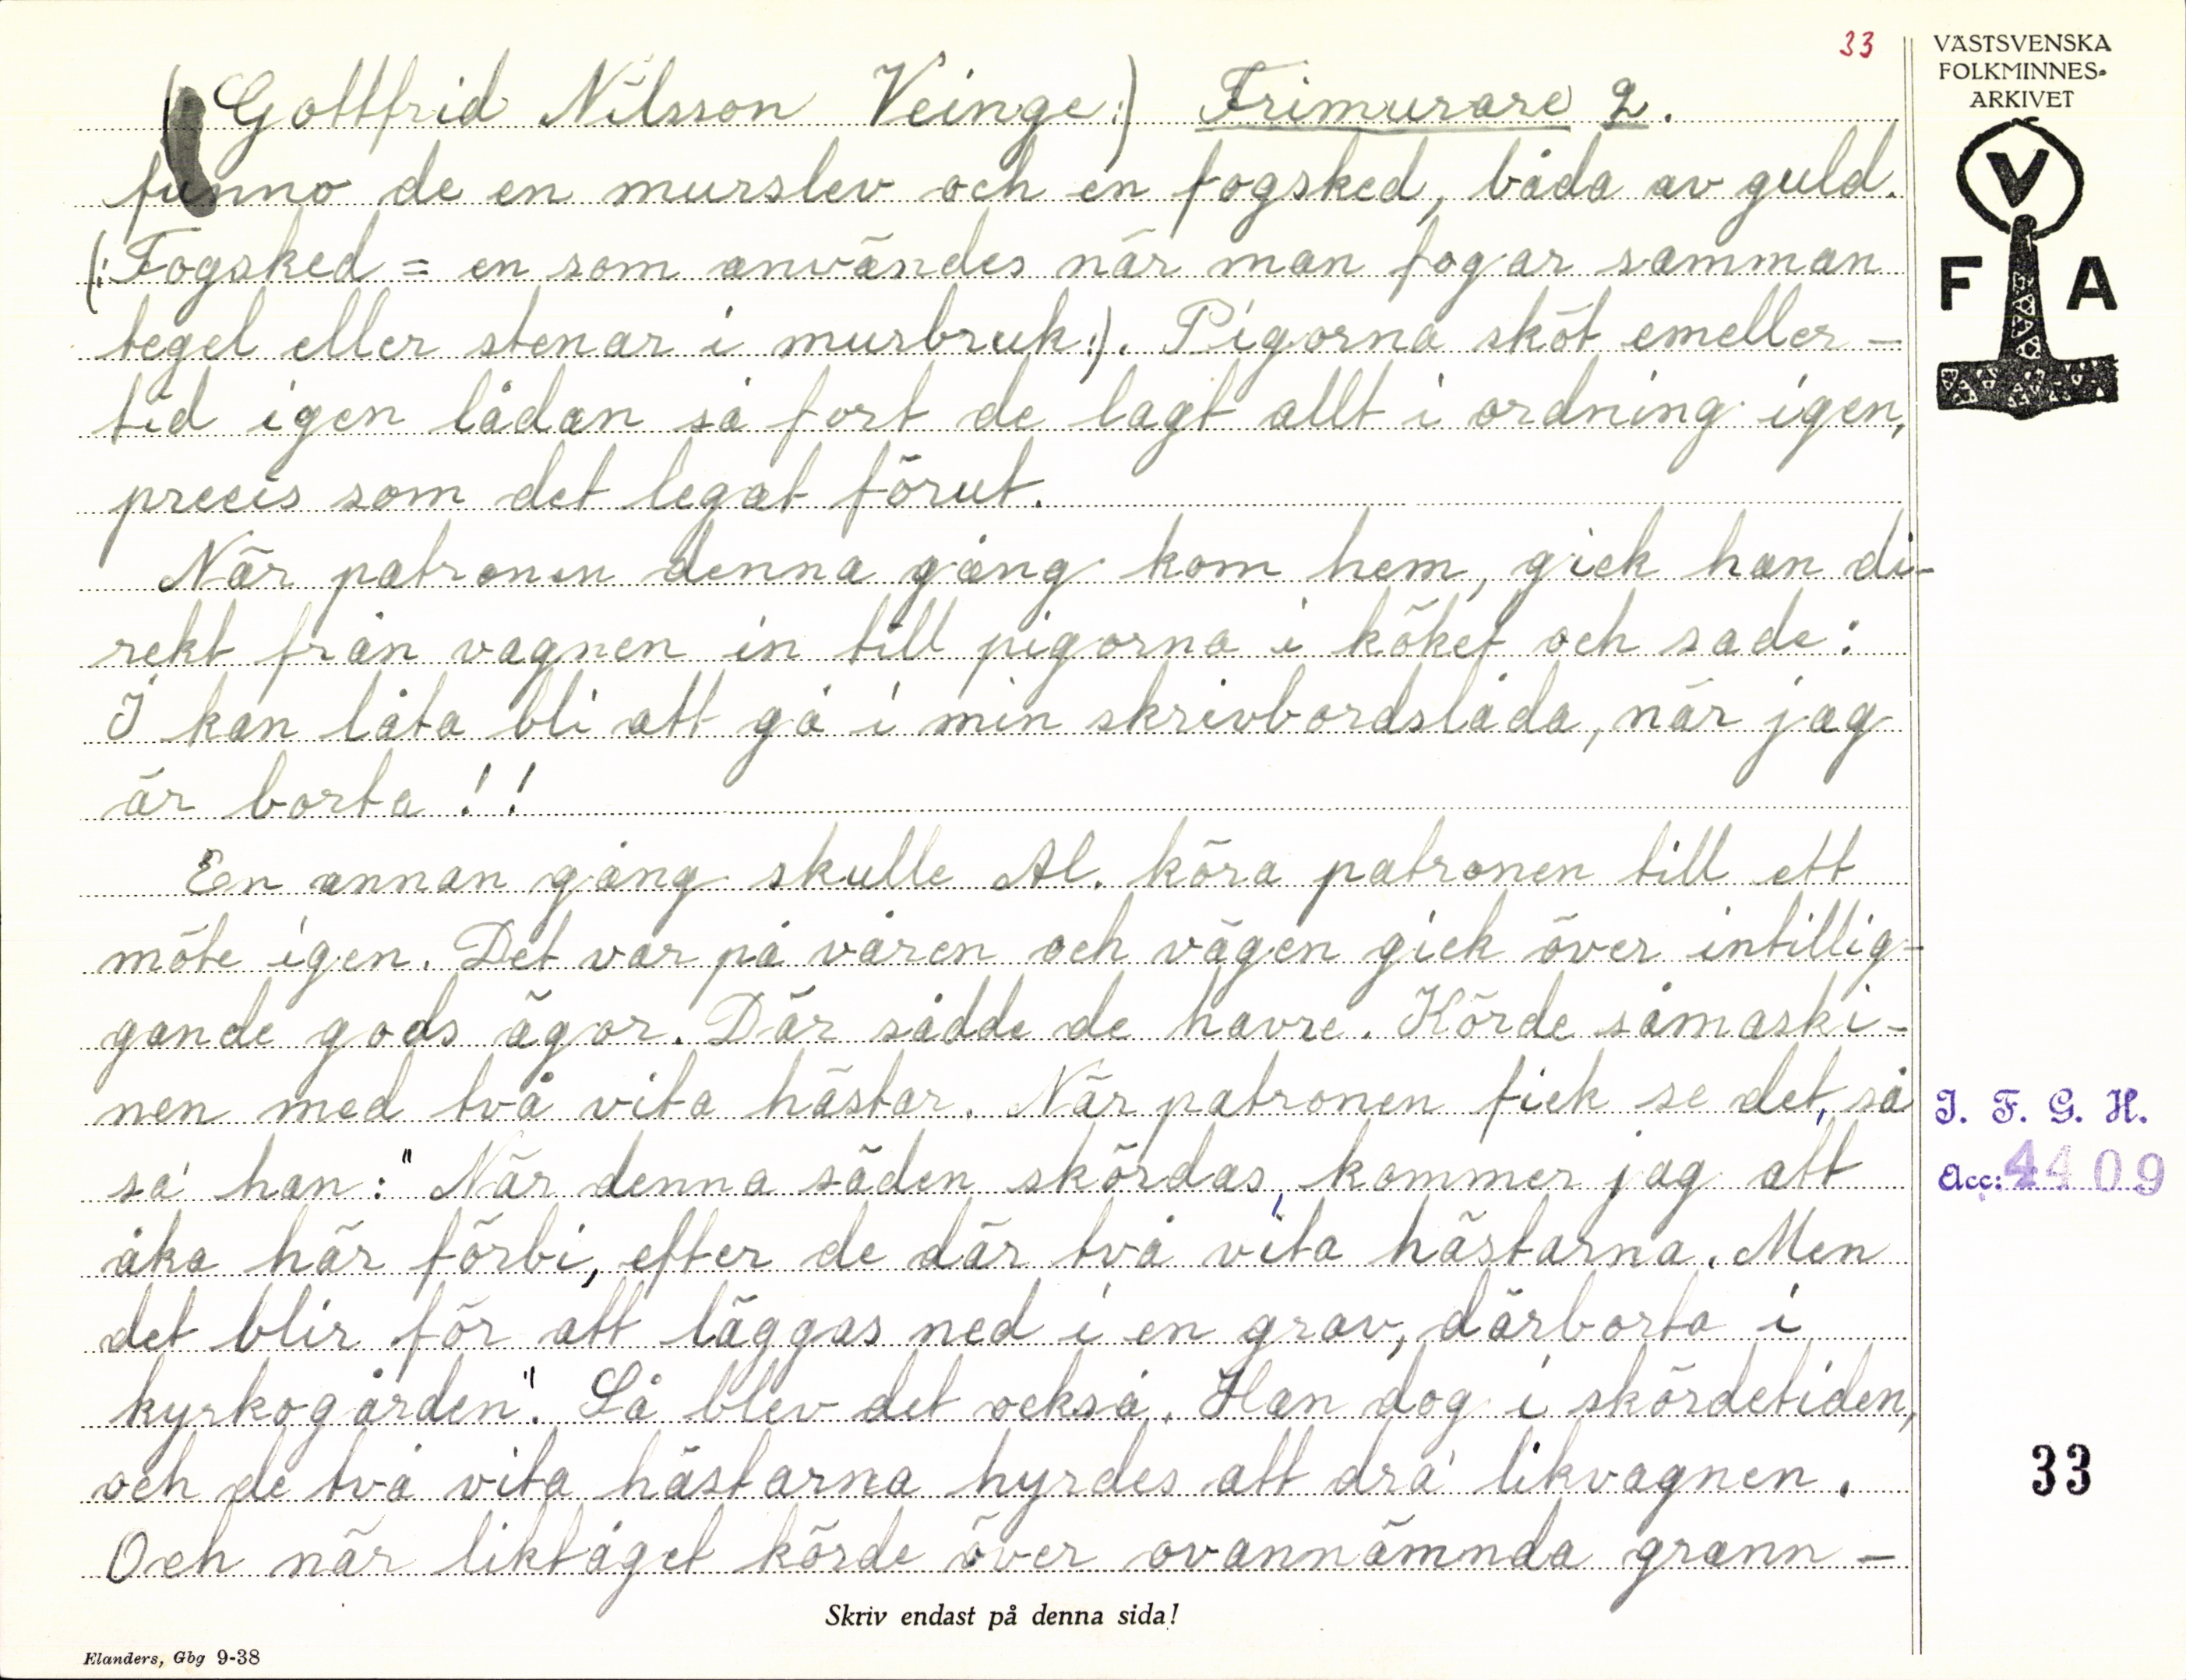 33
VÄSTSVENSKA
FOLKMINNES-
ARKIVET
V
F A
(Gottfrid Nilsson Veinge:) Frimurare 2.
funno de en murslev och en fogsked, båda av guld.
(: Fogsked = en som användes när man fogar samman
tegel eller stenar i murbruk:). Pigorna sköt emeller-
tid igen lådan så fort de lagt allt i ordning igen,
precis som det legat förut.
När patronen denna gång kom hem, gick han di-
rekt från vagnen in till pigorna i köket och sade:
I kan låta bli att gå i min skrivbordslåda, när jag
är borta!!
En annan gång skulle Al. köra patronen till ett
möte igen. Det var på våren och vägen gick över intillig-
gande gods ägor. Där sådde de havre. Körde såmaski-
nen med två vita hästar. När patronen fick se det, så
sa' han: "När denna säden skördas, kommer jag att
åka här förbi, efter de där två vita hästarna. Men
det blir för att läggas ned i en grav, därborta i
kyrkogården". Så blev det också. Han dog i skördetiden,
och de två vita hästarna hyrdes att dra' likvagnen.
Och när liktåget körde över ovannämnda grann-
I. F. G. H.
Acc: 4409
33
Skriv endast på denna sida!
Elanders, Gbg 9-38